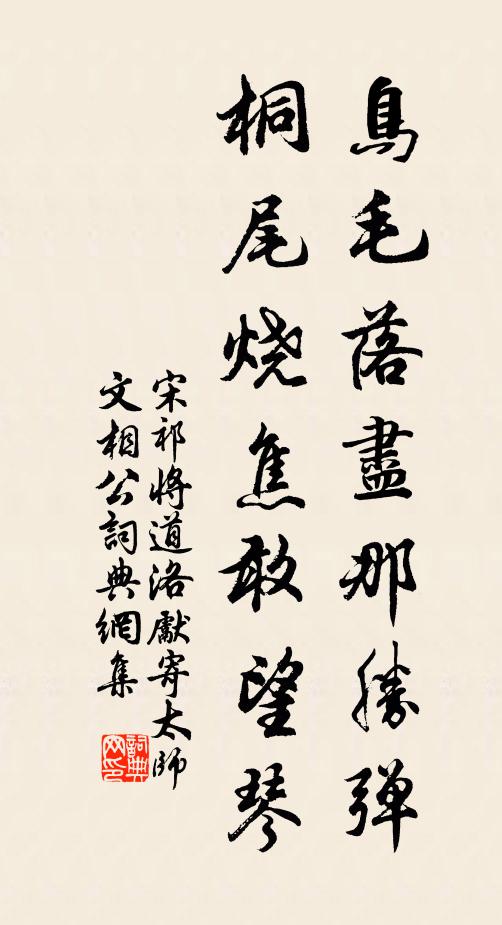 鳥毛落盡那勝弹
桐尾烧焦敢望琴
宋祁將道洛獻寄太師
文相公詞典網集
詞典
网印